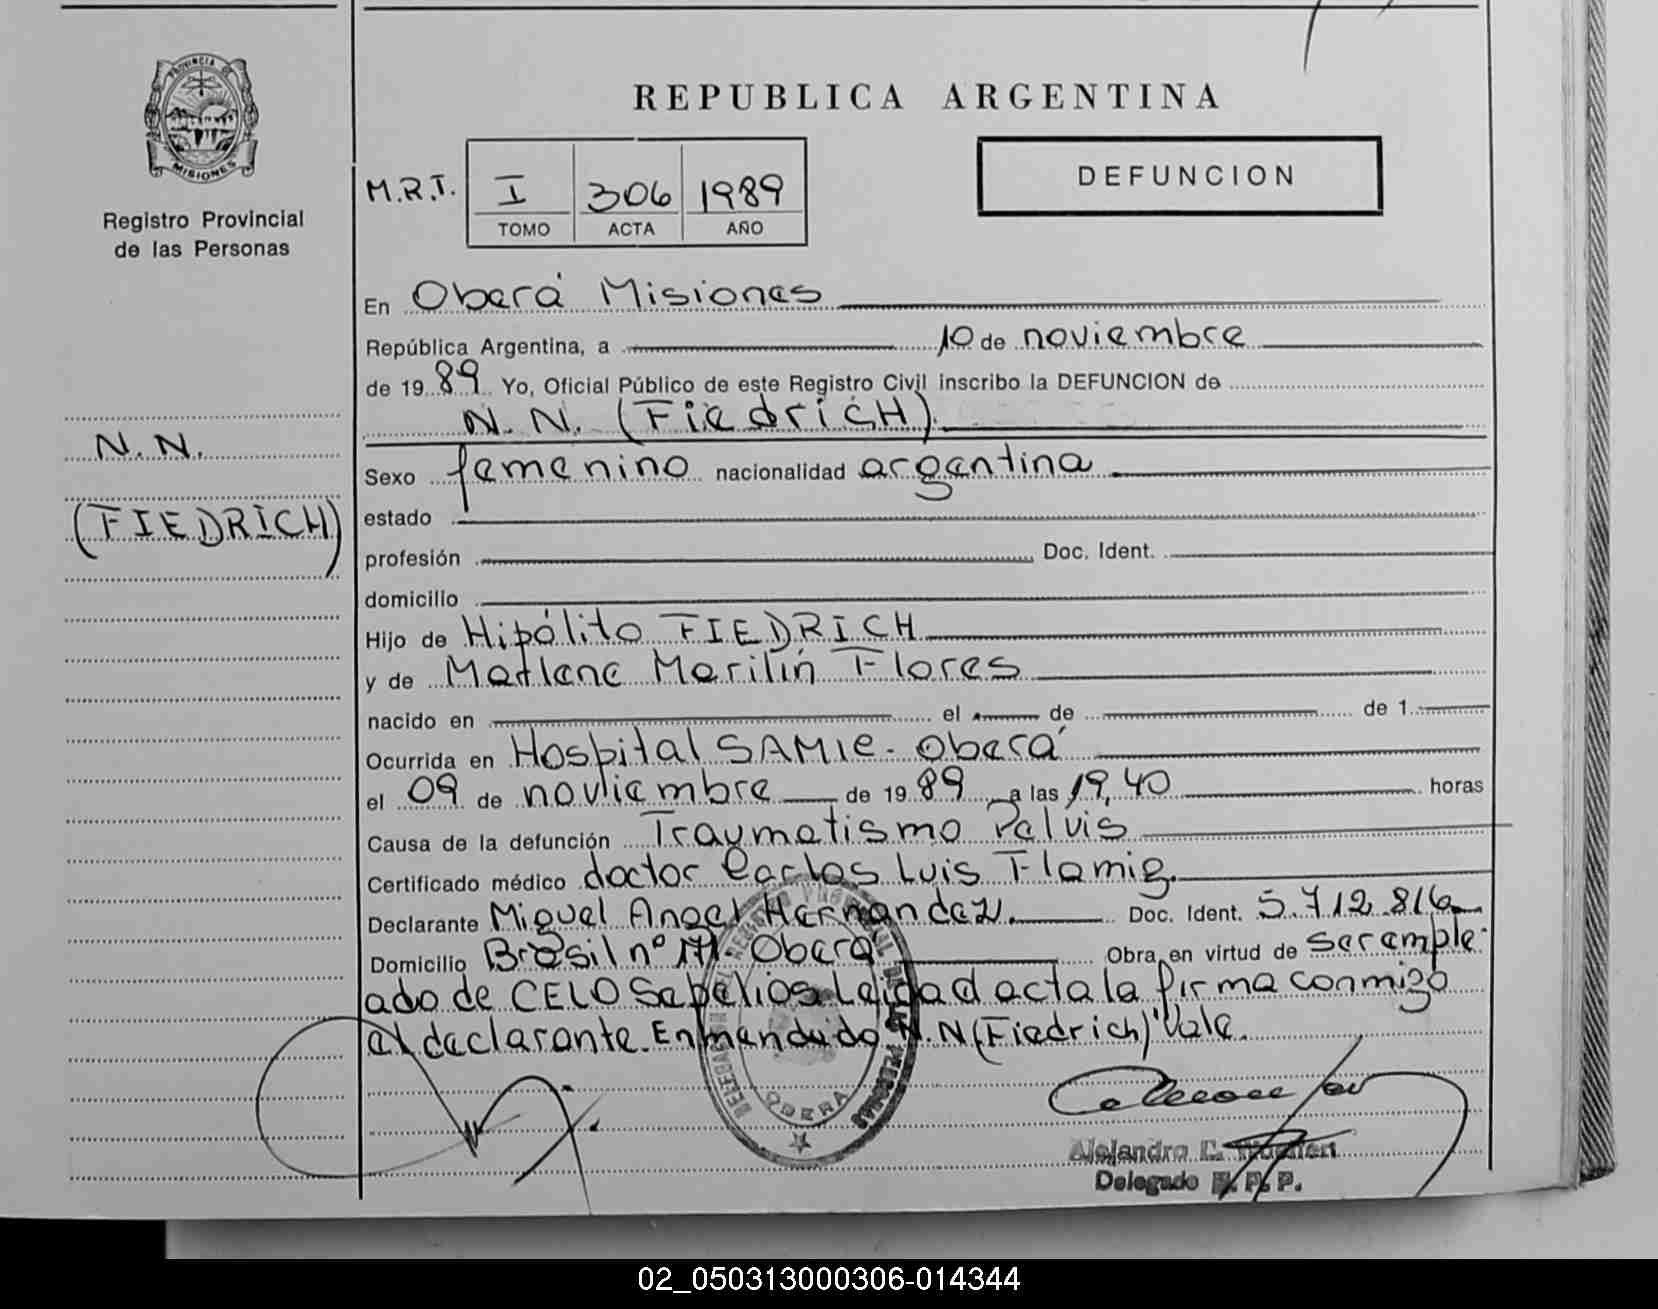 PROVINCIA DE
MISIONES
Registro Provincial
de las Personas
N.N.
(FIEDRICH)
REPUBLICA ARGENTINA
M.R.T. I 306 1989
TOMO ACTA AÑO
DEFUNCION
En Oberá Misiones
República Argentina, a 10 de noviembre
de 1989 Yo, Oficial Público de este Registro Civil inscribo la DEFUNCION de
N.N. (FiedriCH)
Sexo femenino nacionalidad argentina
estado
profesión Doc. Ident.
domicilio
Hijo de Hipólito FIEDRICH
y de Marlene Marilín Flores
nacido en el de de 1
Ocurrida en Hospital SAMIC - Oberá
el 09 de noviembre de 1989 a las 19,40 horas
Causa de la defunción Traumatismo Pelvis
Certificado médico doctor Carlos Luis Flamig.
Declarante Miguel Angel Hernandez. Doc. Ident. 5.712.816
Domicilio Brasil nº 171 - Oberá Obra en virtud de ser emple-
ado de CELO Sepelios Leida el acta la firma conmigo
el declarante. Enmendado N.N (Fiedrich) Vale.
OBERA
Alejandro
Delegado R. P. P.
02_050313000306-014344